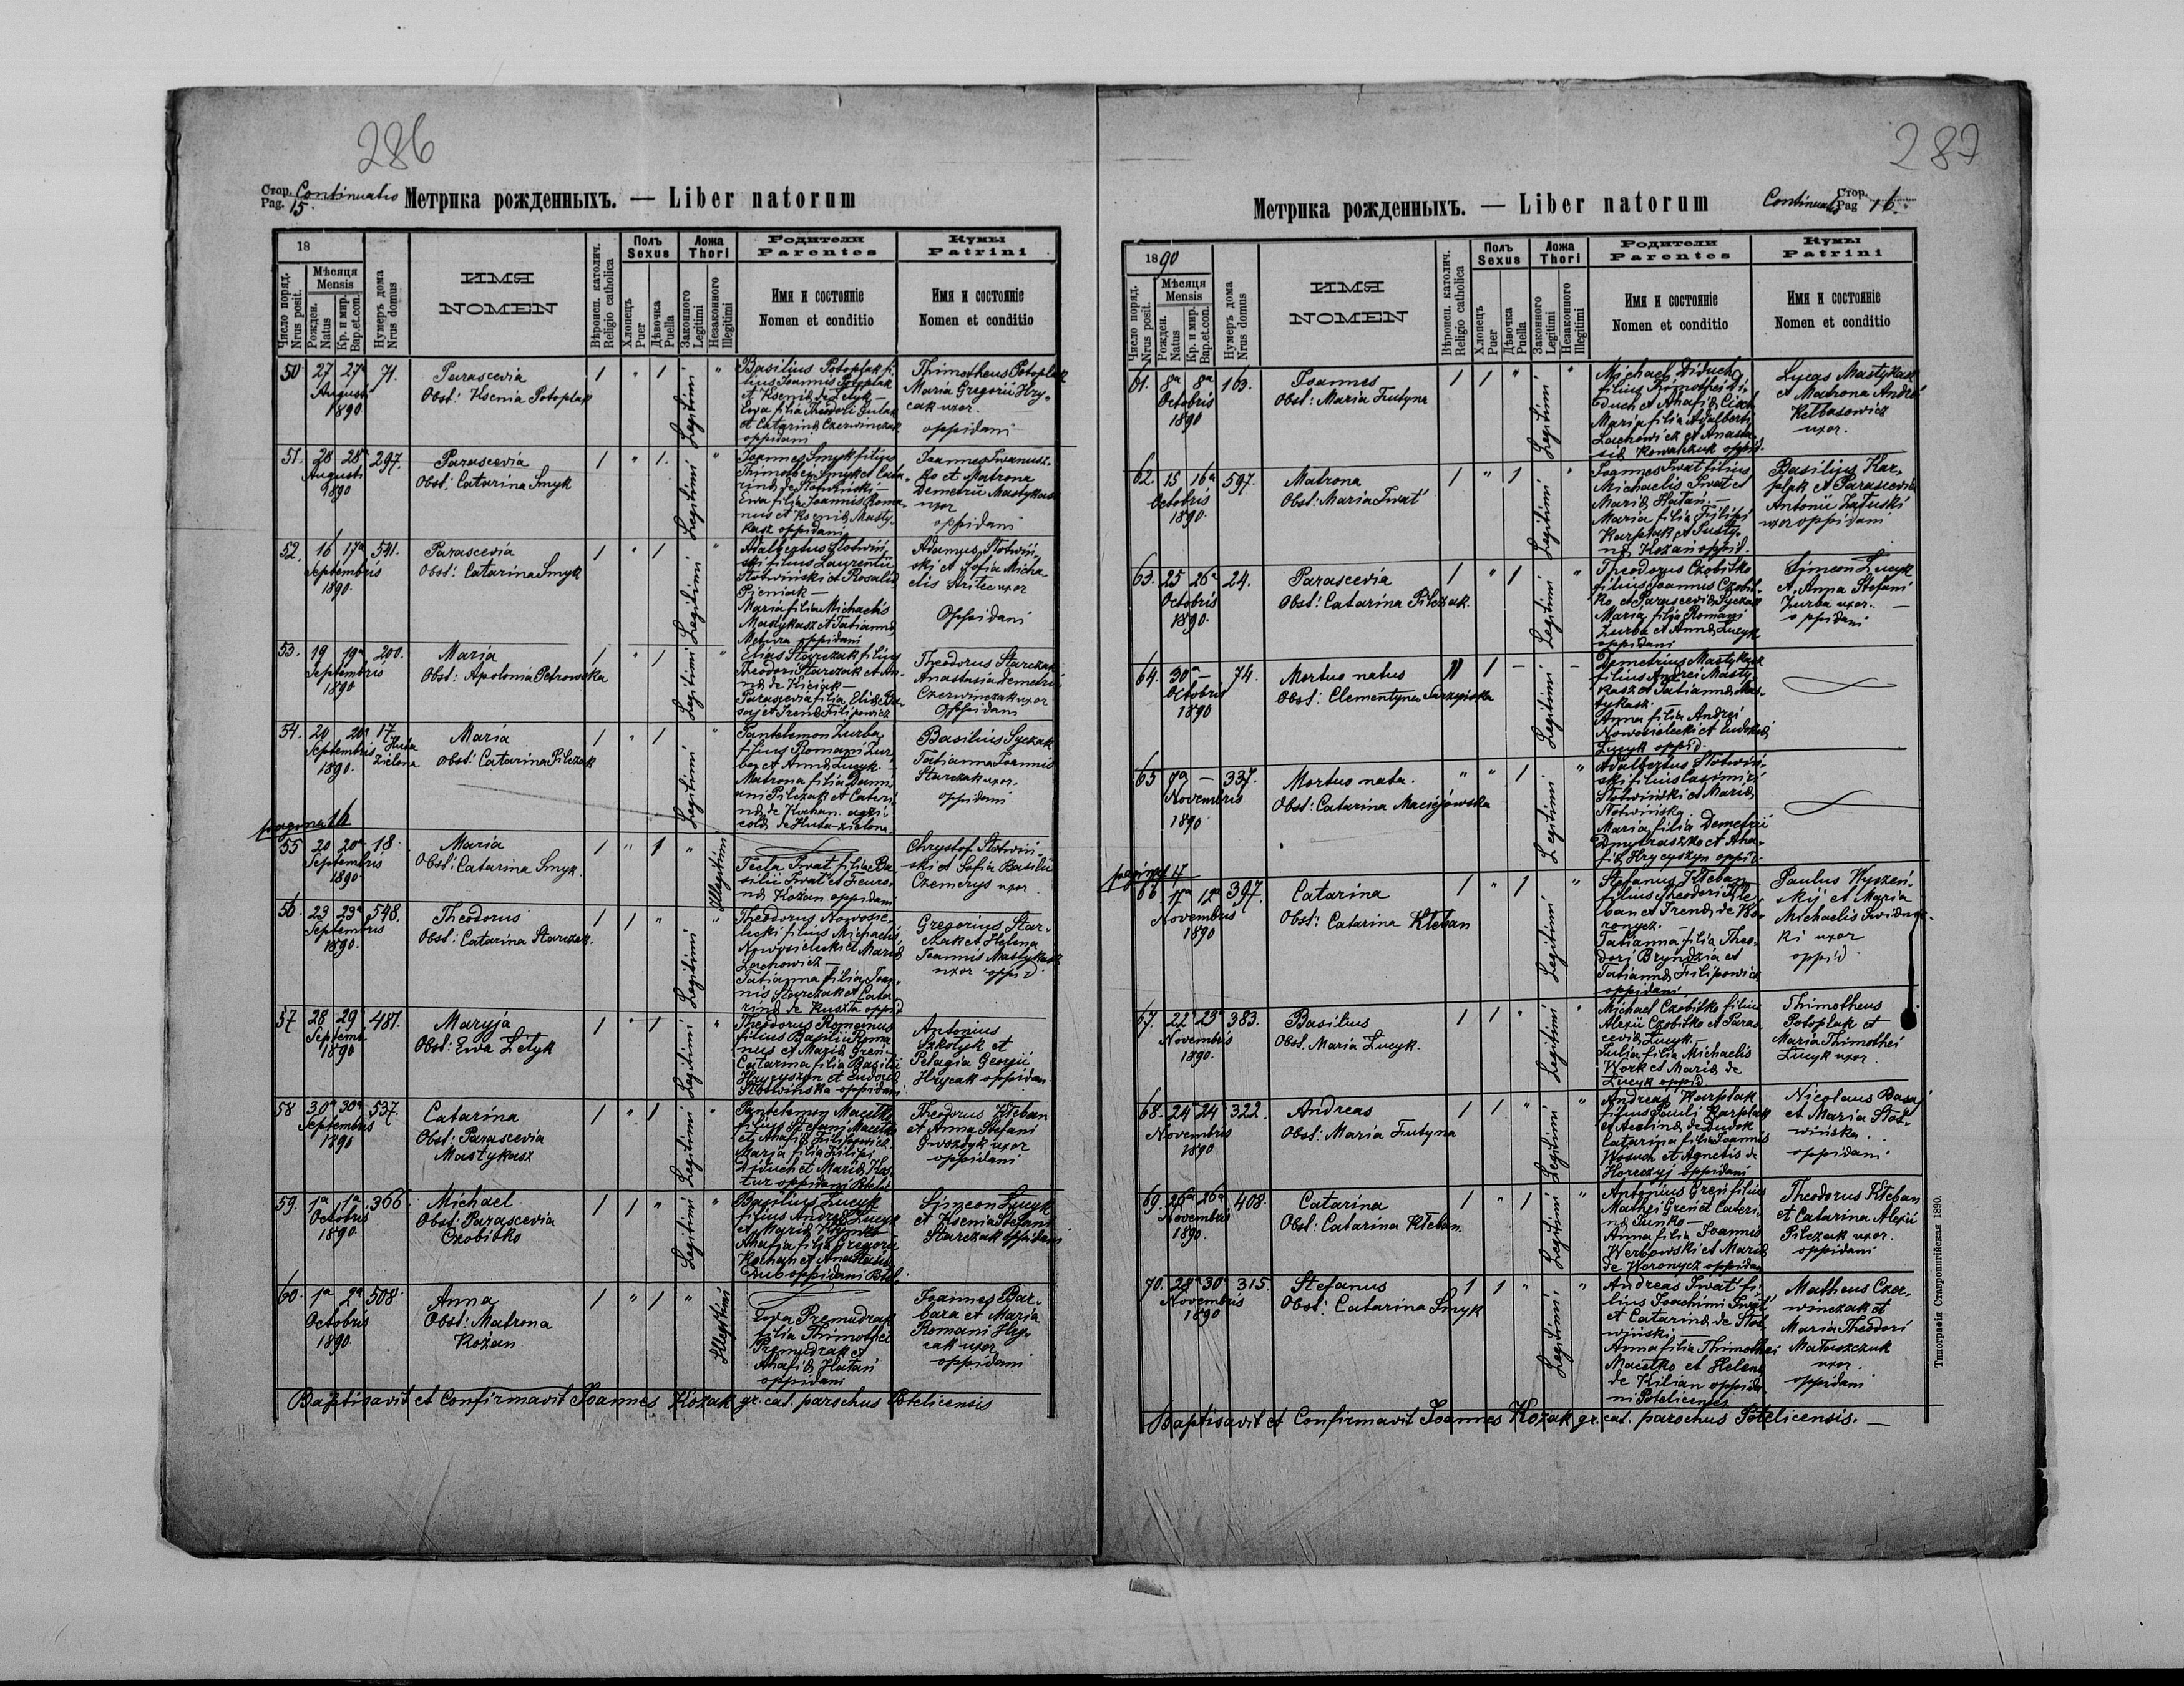 286
Стор. Continuatio
Pag. 15.
Метрика рожденныхъ. — Liber natorum
18
Число поряд.
Nrus posit.
Мѣсяця
Mensis
Рожден.
Natus
Кр. и мир.
Bap.et.con.
Нумеръ дома
Nrus domus
ИМЯ
NOMEN
Вѣроисп. католич.
Religio catholica
Полъ
Sexus
Хлопецъ
Puer
Дѣвочка
Puella
Ложа
Thori
Законного
Legitimi
Незаконного
Illegitimi
Родители
Parentes
Имя и состояніе
Nomen et conditio
Кумы
Patrini
Имя и состояніе
Nomen et conditio
50 27 27a 71.
Augusti
1890
Parascevia
Obst: Ksenia Potoplak
1 " 1 Legitimi "
Basilius Potoplak fi-
lius Joannis Potoplak
et Kseniae de Letyk —
Eva filia Theodori Gulak
et Catarinae Czerwinczak
oppidani
Thimotheus Potoplak
Maria Gregorii Hry-
cak uxor.
oppidani
51. 28 28a 297.
Augusti
1890
Parascevia
Obst: Catarina Smyk
1 " 1. Legitimi "
Joannes Smyk filius
Thimothei Smyk et Cata-
rinae de Słotwiński —
Ewa filia Joannis Roma-
nus et Kseniae Masty-
kasz oppidani
Joannes Iwanusz-
ko et Matrona
Demetrii Mastykasz
uxor
oppidani
52. 16 17a 541.
Septembris
1890.
Parascevia
Obst: Catarina Smyk
1 " 1 Legitimi "
Adalbertus Słotwiń-
ski filius Laurentii
Słotwiński et Rosaliae
Pieniak —
Maria filia Michaelis
Mastykasz et Tatiannae
oppidani
Adamus Słotwiń-
ski et Sofia Micha-
elis uxor
Oppidani
53. 19 19a 200.
Septembris
1890
Maria
Obst: Apolonia Petrowska
1 " 1 Legitimi "
Elias Starczak filius
Theodori Starczak et An-
nae de Kiciak —
Parascevia filia Eliae
et Irenae Filipowicz
Theodorus Starczak
Anastasia Demetrii
Czerwinczak uxor
Oppidani
54. 20 20a 17
Septembris Huta
1890. Zielona
Maria
Obst: Catarina Pilczak
1 " 1 Legitimi "
Pantelemon Zurba
filius Romani Zur-
ba et Annae Lucyk —
Matrona filia Dami-
ani Pilczak et Cateri-
nae de Kochan. agri-
colae de Huta-zielona
Basilius Syczak
Tatianna Joannis
Starczak uxor.
oppidani
pagina 16
55 20 20a 18.
Septembris
1890.
Maria
Obst: Catarina Smyk.
1 " 1 " Illegitimi
Tecla Iwat filia Ba-
silii Iwat et
nae Kożan oppidani
Chrystof Słotwiń-
ski et Sofia Basilii
Czemerys uxor
56 23 23a 548.
Septembris
1890.
Theodorus
Obst: Catarina Starczak.
1 1 " Legitimi "
Theodorus Nowosie-
lecki filius Michaelis
Nowosielecki et Mariae
Lachowicz —
Tatianna filia Joan-
nis Starczak et Cata-
rinae de Kuszta oppid
Gregorius Star-
czak et Helena
Joannis Mastykasz
uxor oppid
57 28 29 481.
Septemb
1890
Maryja
Obst: Ewa Letyk
1 " 1 Legitimi "
Theodorus Romanus
filius Basilii Roma-
nus et Mariae Greń —
Catarina filia Basilii
Hrycyszyn et Eudoxiae
Słotwińska oppidani.
Antonius
Szkołyk et
Pelagia Georgii
Hrycak oppidan
58 30a 30a 537.
Septembris
1890
Catarina
Obst: Parascevia
Mastykasz
1 " 1 Legitimi "
Pantelemon Macełko
filius Stefani Macełko
et Ahafiae Filipowicz.
Maria filia Filipi
Diduch et Mariae Kos-
tur oppidani Potel:
Theodorus Kłeban
et Anna Stefani
Gwozdyk uxor
oppidani
59. 1a 1a 366.
Octobris
1890.
Michael
Obst: Parascevia
Czobitko
1 1 " Legitimi "
Basilius Lucyk
filius Andreae Lucyk
et Mariae
Ahafia filia Gregorii
Kochan et Anastasiae
Dub oppidani Potel:
Simeon Lucyk
et Ksenia Stefani
Starczak oppidani
60. 1a 2a 508.
Octobris
1890.
Anna
Obst: Matrona
Kożan
1 " 1 " Illegitimi
Eva Premudrak
filia Thimothei
Premudrak et
Ahafiae Hałań
oppidani
Joannes Bar-
bara et Maria
Romani Hry-
cak uxor
oppidani
Baptisavit et Confirmavit Joannes Kozak gr. cat. parochus Potelicensis
287
Метрика рожденныхъ. — Liber natorum
Continuatio
Стор.
Pag 16.
1890
Число поряд.
Nrus posit.
Мѣсяця
Mensis
Рожден.
Natus
Кр. и мир.
Bap.et.con.
Нумеръ дома
Nrus domus
ИМЯ
NOMEN
Вѣроисп. католич.
Religio catholica
Полъ
Sexus
Хлопецъ
Puer
Дѣвочка
Puella
Ложа
Thori
Законного
Legitimi
Незаконного
Illegitimi
Родители
Parentes
Имя и состояніе
Nomen et conditio
Кумы
Patrini
Имя и состояніе
Nomen et conditio
61. 8a 8a 163.
Octobris
1890
Joannes
Obst: Maria Frutyna
1 1 " Legitimi "
Michael Diduch
filius Thimothei Di-
duch et Ahafiae
Maria filia Adalberti
Lachowicz et Anasta-
siae Kowalczuk oppid.
Lucas Mastykasz
et Matrona Andrei
Kełbasowicz
uxor.
62. 15 16a 597.
Octobris
1890.
Matrona
Obst: Maria Iwat
1 " 1 Legitimi "
Joannes Iwat filius
Michaelis Iwat et
Mariae Hałań. —
Maria filia Filipi
Karplak et Justy-
nae Kożan oppid.
Basilius Kar-
plak et Parascevia
Antonii Załuski
uxor oppidani
63. 25 26a 24.
Octobris
1890.
Parascevia
Obst: Catarina Pilczak.
1 " 1 Legitimi "
Theodorus Czobitko
filius Joannis Czobit-
ko et Parasceviae Syczak
Maria filia Romani
Zurba et Annae Lucyk
oppidani
Simeon Lucyk
et Anna Stefani
Zurba uxor. —
oppidani
64. 30a — 74.
Octobris
1890
Mortuo natus
Obst: Clementyna
1 — Legitimi —
Demetrius Mastykasz
filius Andrei Masty-
kasz et Tatiannae Mas-
tykasz. —
Anna filia Andrei
Nowosielecki et Eudokiae
Lucyk oppid.
65 7a — 337.
Novembris
1890
Mortuo nata.
Obst: Catarina Maciejowska
" " 1 Legitimi "
Adalbertus Słotwiń-
ski filius Casimiri
Słotwiński et Mariae
Słotwińska.
Maria filia Demetrii
Dmytraszko et Aha-
fiae Hrycyszyn oppid.
pagina 17
66 12a 397.
Novembris
1890
Catarina
Obst: Catarina Kłeban
1 " 1 Legitimi "
Stefanus Kłeban
filius Theodori Kłe-
ban et Irenae de Wo-
ronycz. —
Tatianna filia Theo-
dori Bryndzia et
Tatiannae Filipowicz
oppidani
Paulus Wyszeń-
skij et Maria
Michaelis Swidnic-
ki uxor
oppid
67. 22a 23a 383.
Novembris
1890.
Basilius
Obst. Maria Lucyk.
1 1 " Legitimi "
Michael Czobitko filius
Alexii Czobitko et Paras-
ceviae Lucyk. —
Julia filia Michaelis
Work et Mariae de
Lucyk oppid
Thimotheus
Potoplak et
Maria Thimothei
Lucyk uxor.
68. 24a 24a 322.
Novembris
1890
Andreas
Obst: Maria Frutyna
1 1 " Legitimi "
Andreas Karplak
filius Pauli Karplak
et de Dudok
Catarina filia Joannis
Wosuch et Agnetis de
Horeczyj oppidani
Nicolaus Basaj
et Maria Słot-
wińska.
oppidani
69. 26a 26a 408.
Novembris
1890.
Catarina
Obst: Catarina Kłeban.
1 " 1 Legitimi "
Antonius Greń filius
Mathei Greń et Cateri-
nae Sunko —
Anna filia Joannis
Werbowski et Mariae
de Woronycz oppidan
Theodorus Kłeban
et Catarina Alexii
Pilczak uxor.
oppidani
70. 28a 30a 315.
Novembris
1890
Stefanus
Obst: Catarina Smyk
1 1 " Legitimi "
Andreas Iwat fi-
lius Joachimi Iwat
et Catarinae de Słot-
wiński —
Anna filia Thimothei
Macełko et Helenae
de Kilian oppida-
ni Potelicenses
Matheus Czer-
winczak et
Maria Theodori
Matwszczuk
uxor.
oppidani
Baptisavit et Confirmavit Joannes Kozak gr. cat. parochus Potelicensis. —
Типографія Ставропигійская 1890.